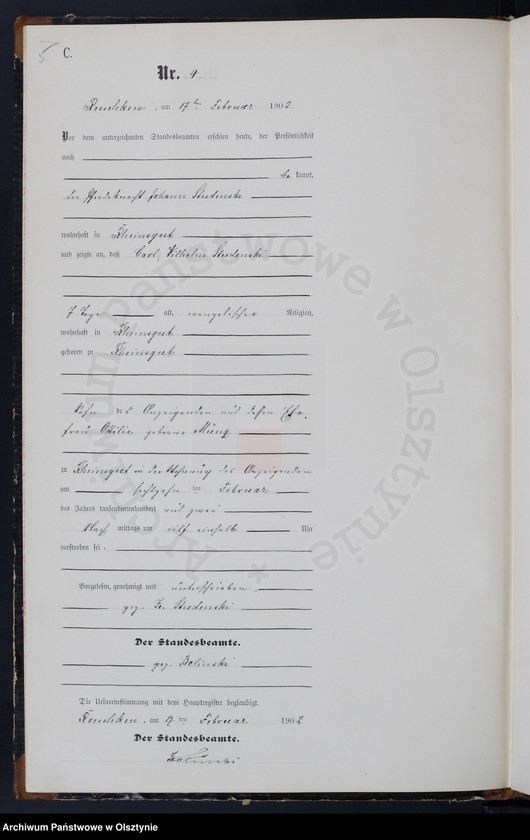 5
C.
Nr. 4
Reuschken, am 17ten Februar 1902.
Vor dem unterzeichneten Standesbeamten erschien heute, der Persönlichkeit
nach
be kannt,
der Pferdeknecht Johann
wohnhaft in Rheinsgut
und zeigte an, daß Carl Wilhelm
7 Tage alt, evangelischer Religion,
wohnhaft in Rheinsgut
geboren zu Rheinsgut
Sohn des Anzeigenden und dessen Ehe-
frau Ottilie geborene
zu Rheinsgut in der Wohnung des Anzeigenden
am sechszehn ten Februar
des Jahres tausendneunhundert und zwei
Nach mittags um Uhr
verstorben sei.
Vorgelesen, genehmigt und unterschrieben.
gez.
Der Standesbeamte.
gez.
Die Uebereinstimmung mit dem Hauptregister beglaubigt.
Reuschken, am 17ten Februar 1902
Der Standesbeamte.
Archiwum Państwowe w Olsztynie *
Archiwum Państwowe w Olsztynie